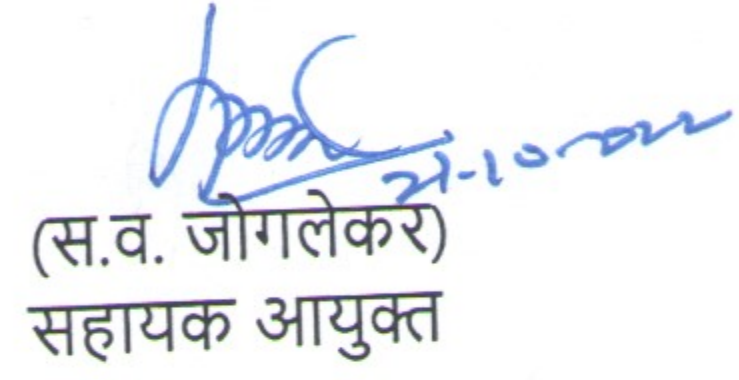 21-10-2022
(स.व. जोगलेकर)
सहायक आयुक्त